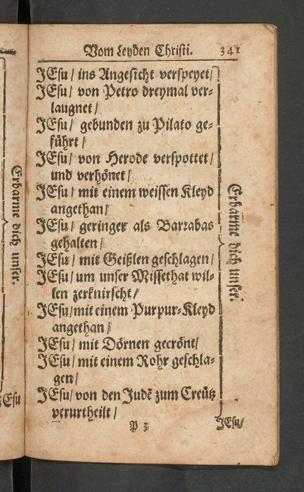 Vom Leyden Christi. 341
JEsu/ ins Angesicht verspeyet/
JEsu/ von Petro dreymal ver-
laugnet/
JEsu/ gebunden zu Pilato ge-
führt/
JEsu/ von Herode verspottet/
und verhönet/
JEsu/ mit einem weissen Kleyd
angethan/
JEsu/ geringer als Barrabas
gehalten/
JEsu/ mit Geißlen geschlagen/
JEsu/ um unser Missethat wil-
len zerknirscht/
JEsu/ mit einem Purpur-Kleyd
angethan/
JEsu/ mit Dörnen gecrönt/
JEsu/ mit einem Rohr geschla-
gen/
JEsu/ von den Judẽ zum Creütz
verurtheilt/
Erbarme dich unser.
P 3
JEsu/
Erbarme dich unser.
JEsu